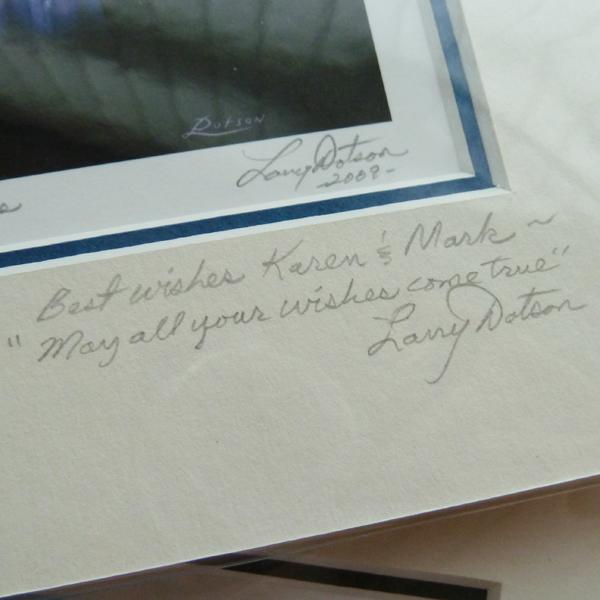 Dotson
Larry Dotson
2009-
Best wishes Karen & Mark ~
"May all your wishes come true"
Larry Dotson